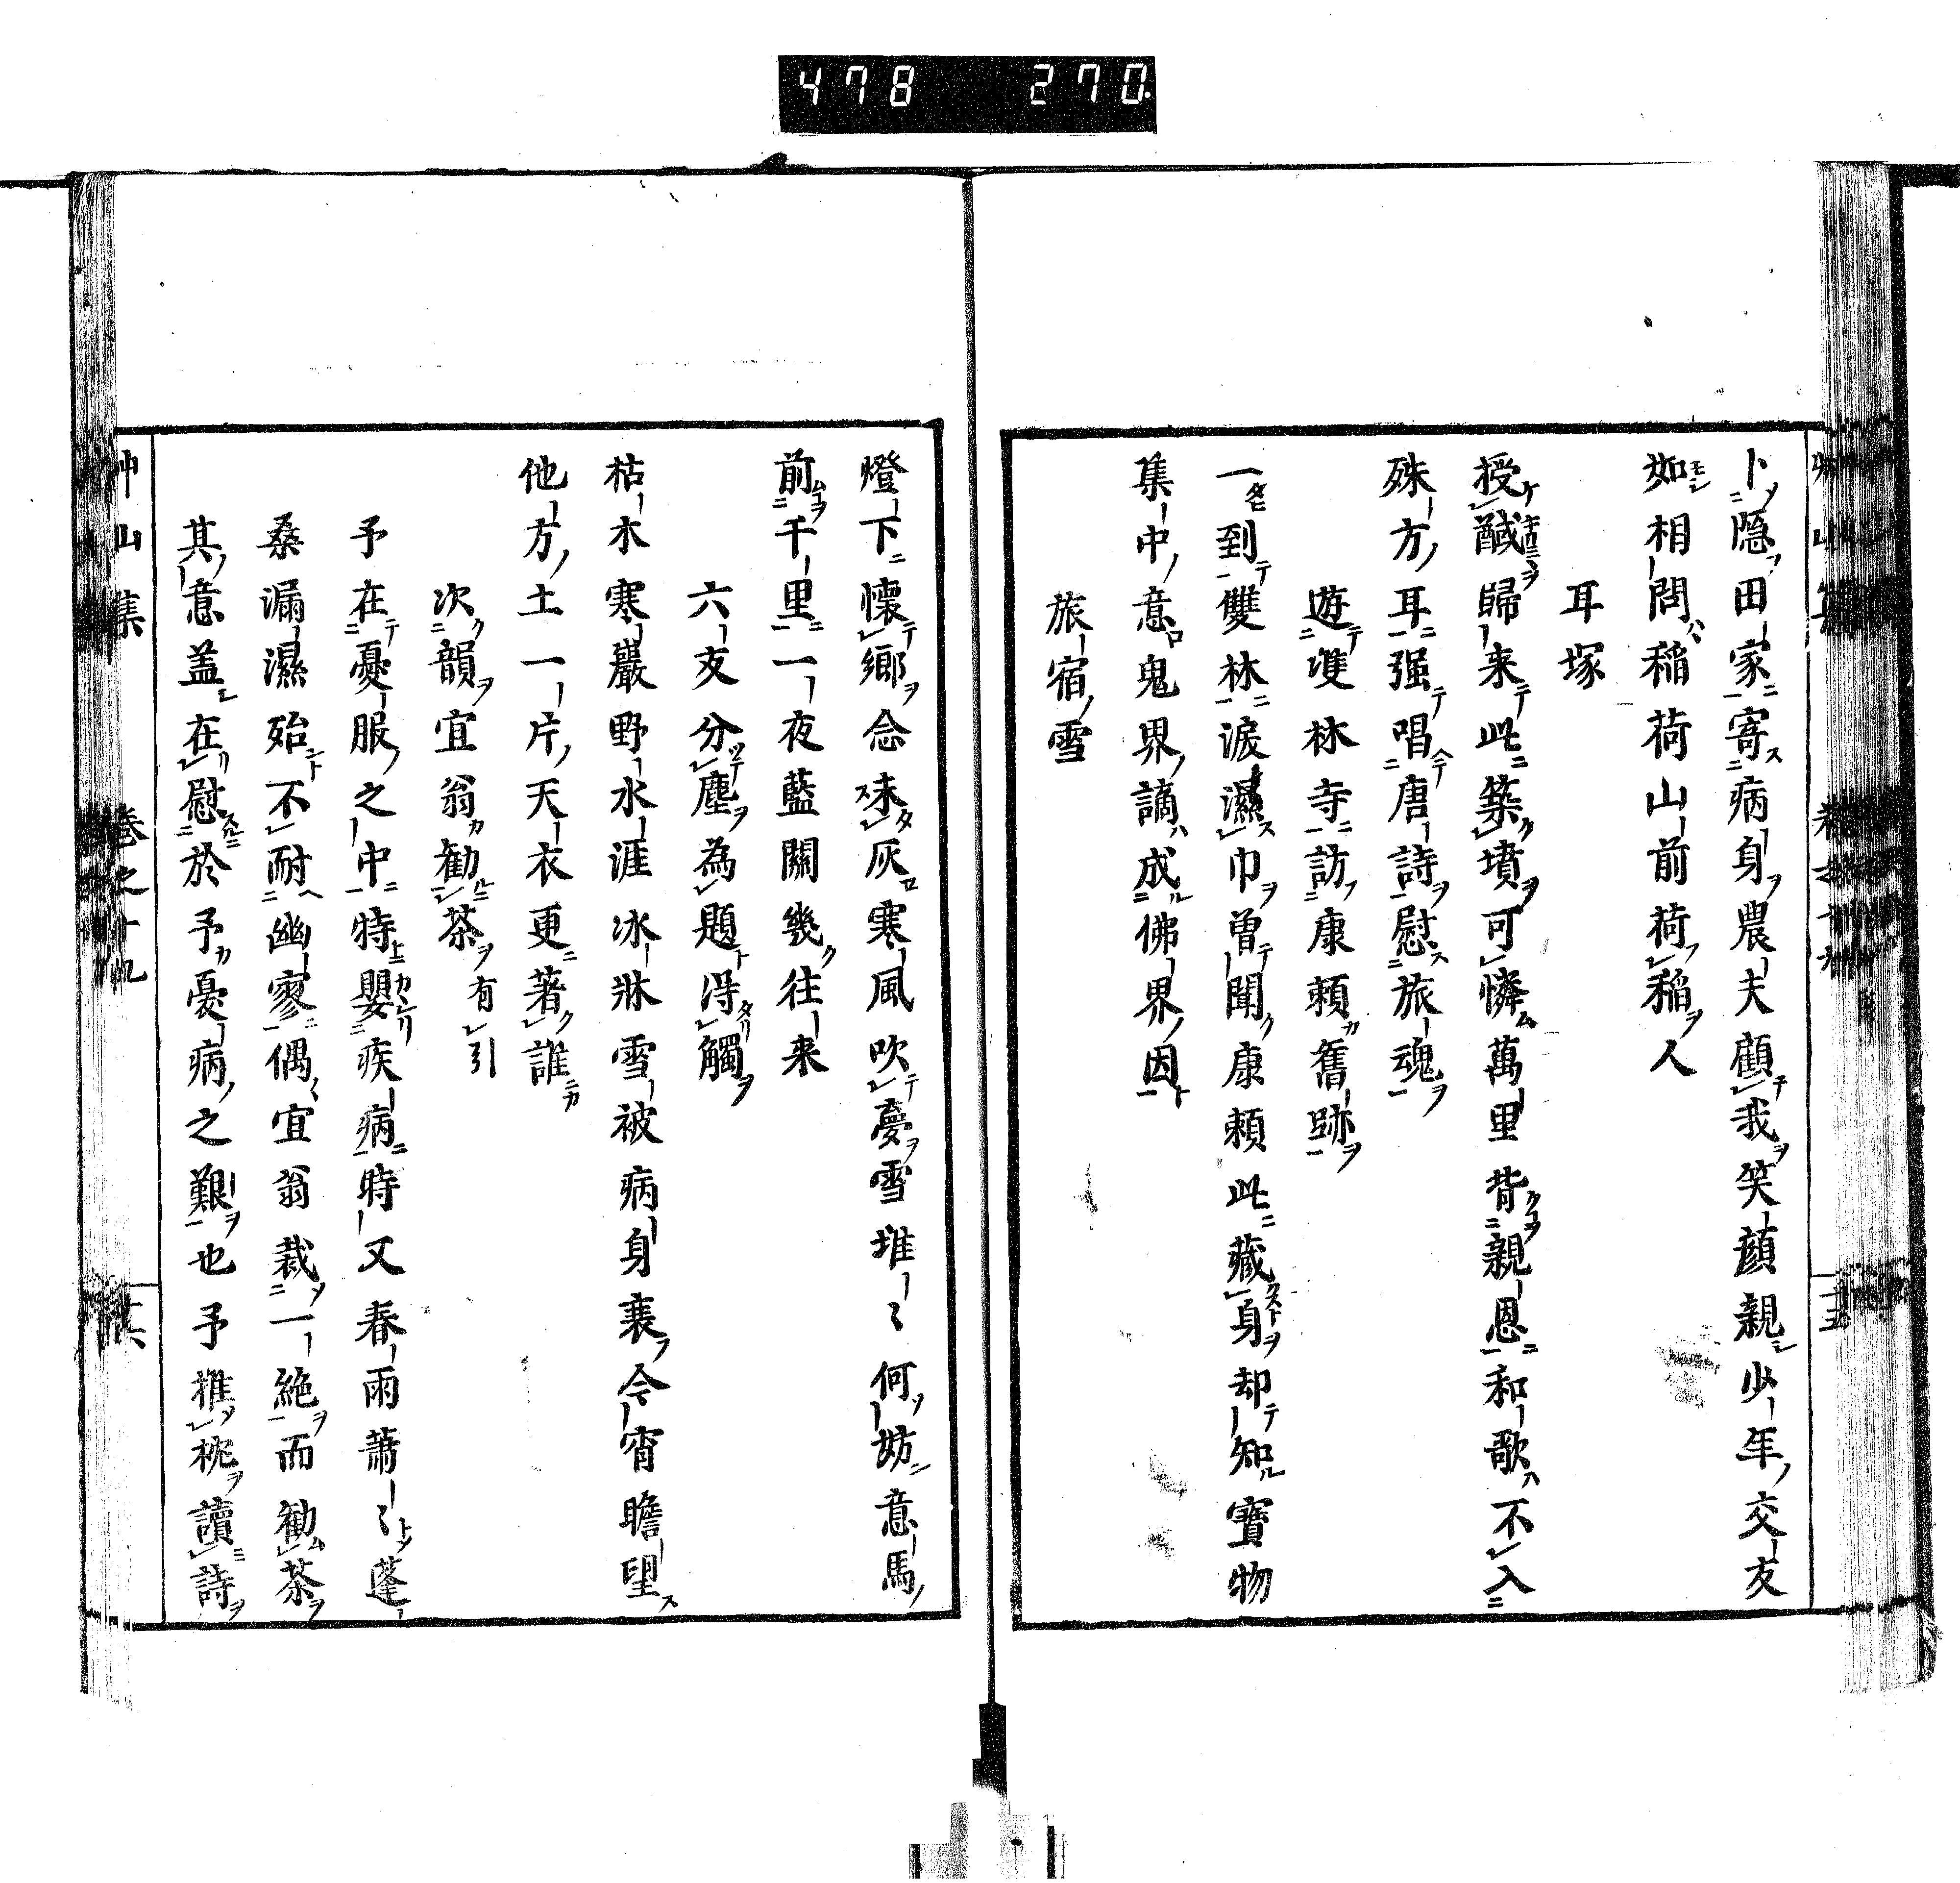 478 270
卜隱田家寄病身農夫顧我笑顔親少年交友
如相問稲荷山前荷稲人
耳塚
授馘歸来此築墳可憐萬里背親恩和歌不入
殊方耳强唱唐詩慰旅魂
遊雙林寺訪康頼舊跡
一到雙林淚濕巾曽聞康頼此藏身却知寶物
集中意鬼界謫成佛界因
旅宿雪
燈下懷鄉念未灰寒風吹夢雪堆〻何妨意馬
前千里一夜藍關幾往来
六友分塵為題得觸
枯木寒巖野水涯冰牀雪被病身衰今宵瞻望
他方土一片天衣更著誰
次韻宜翁勧茶有引
予在憂服之中特嬰疾病時又春雨蕭〻蓬
桑漏濕殆不耐幽寥偶宜翁裁一絶而勧茶
其意盖在慰於予憂病之艱也予推枕讀詩
艸山集 巻之十九